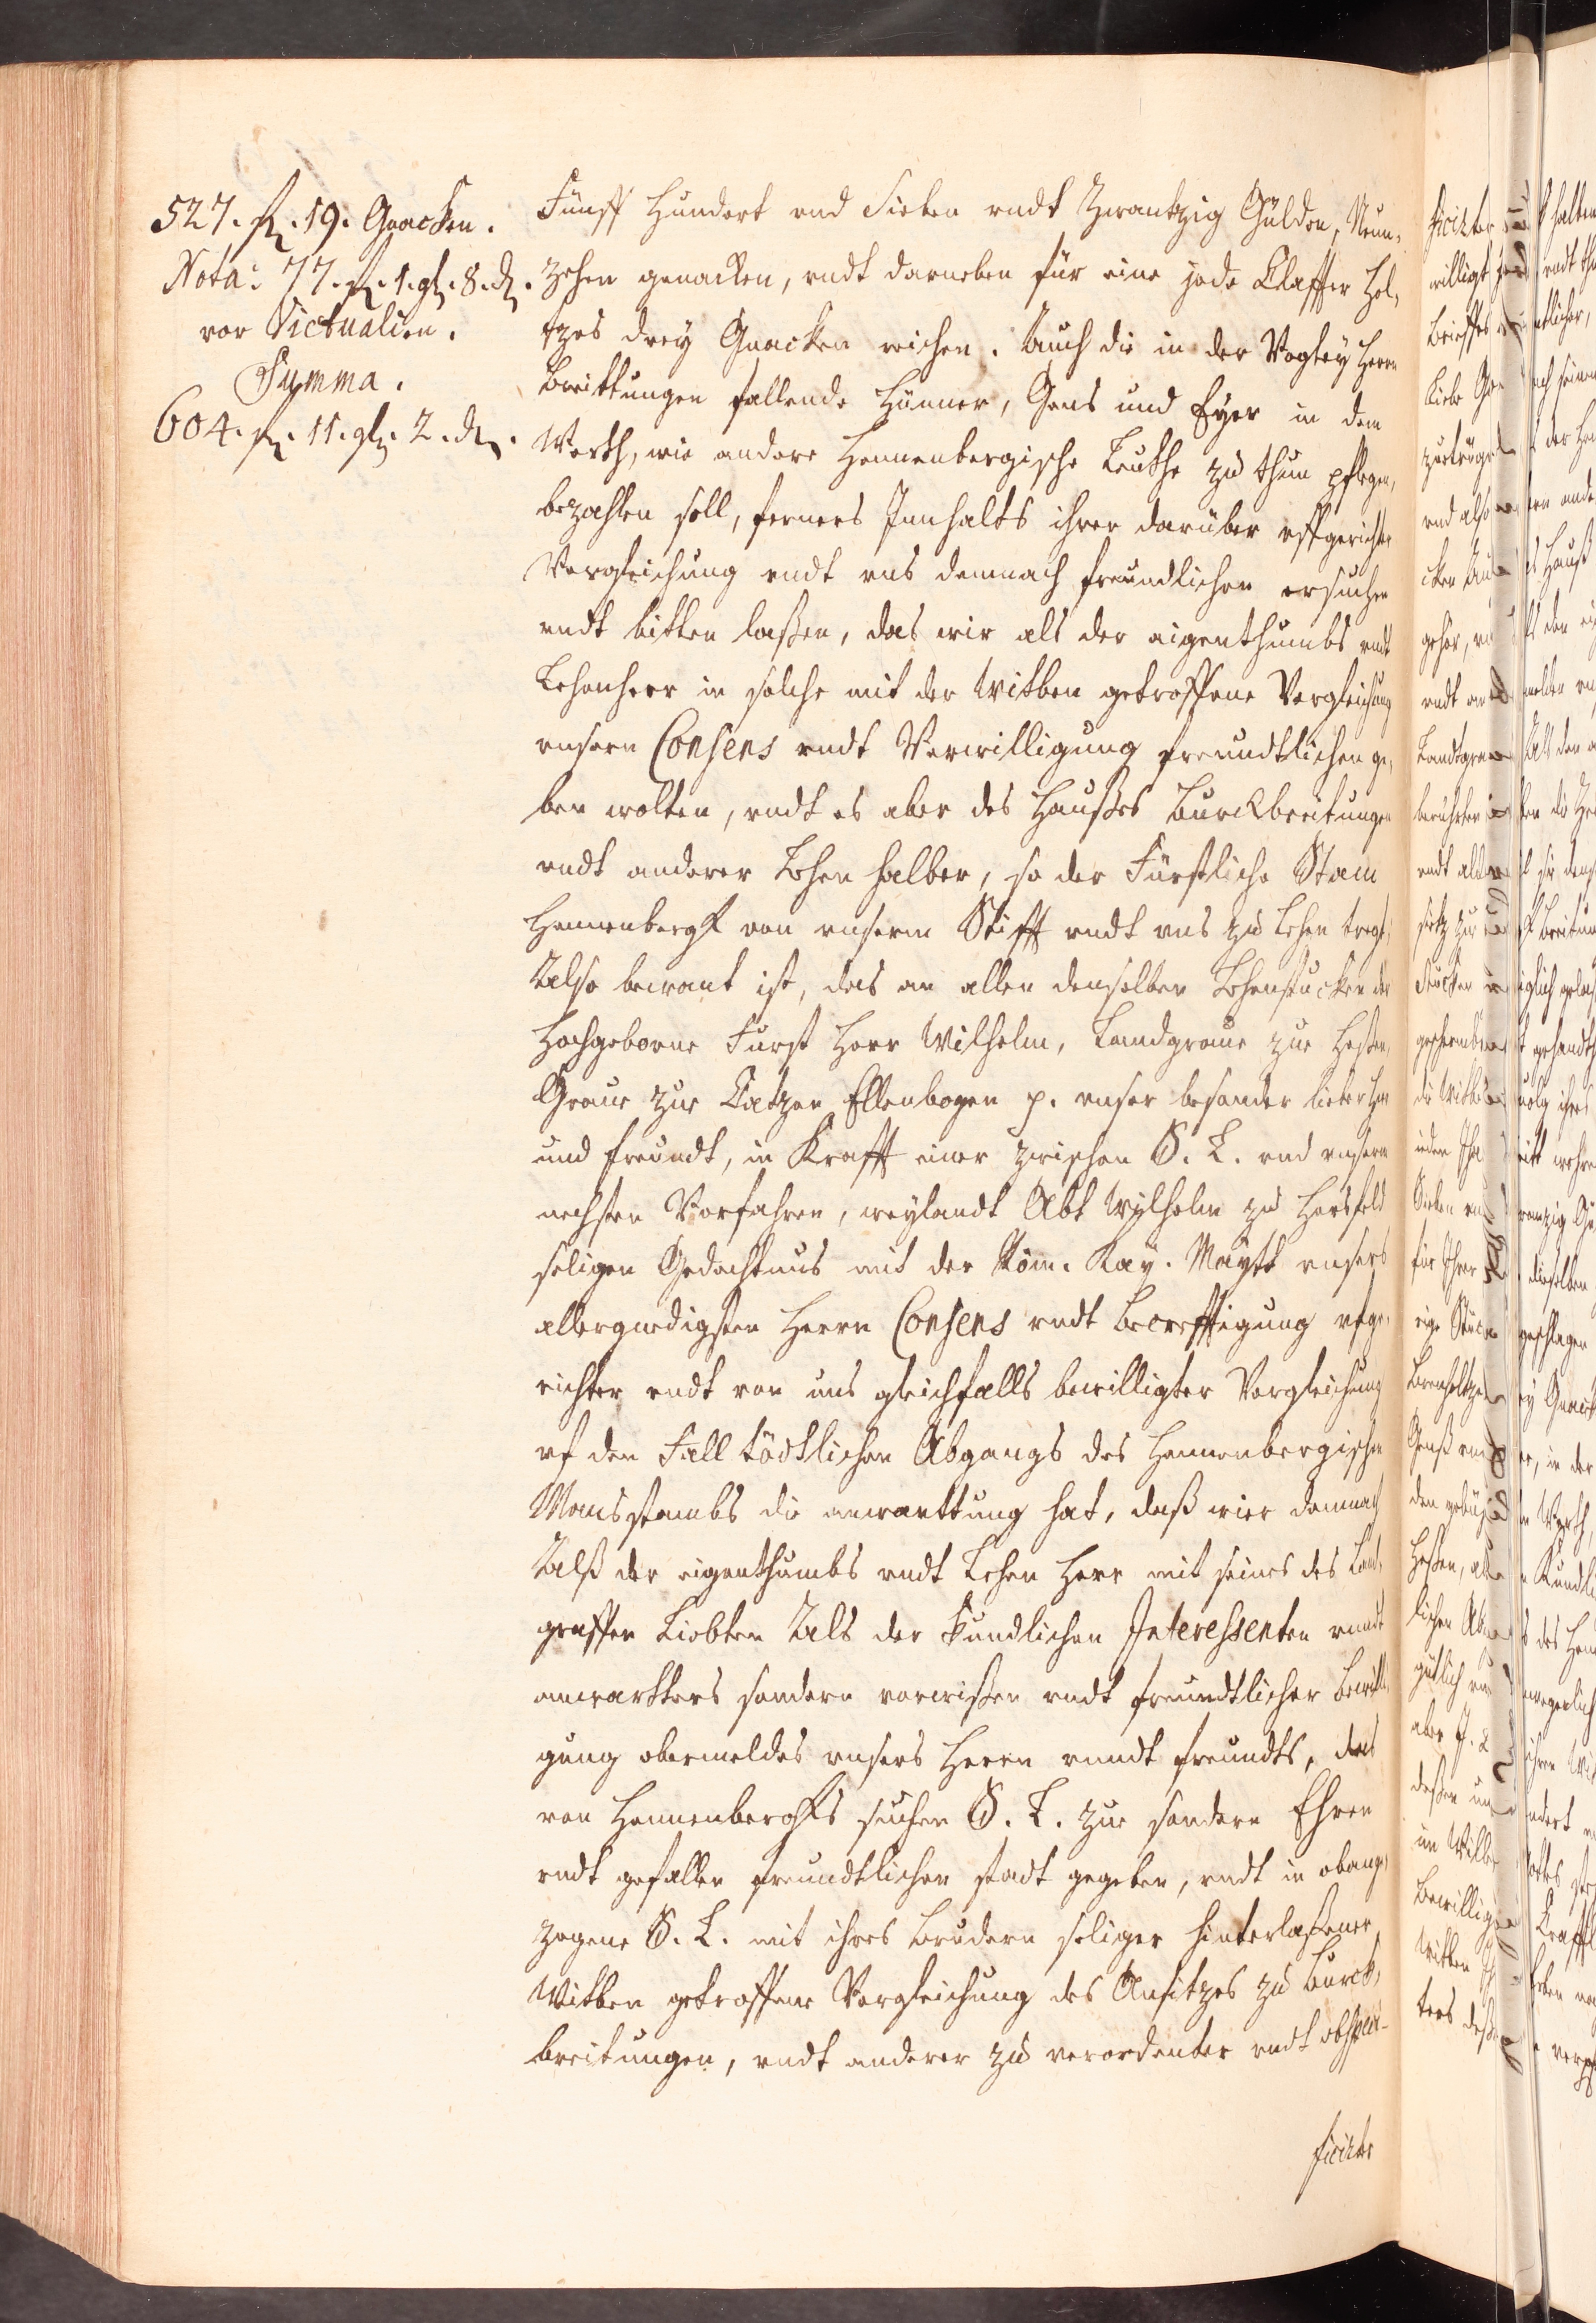 527. fl. 19. Gnacken.
Nota: 77. fl. 1. gl. 8. d.
vor Victualien.
Summa.
604. fl. 11. gl. 2. d.
Fünff Hundert vnd Sieben vndt Zwantzig Gülden, Neun,
zehen gnacken, vndt darneben für eine jede Claffter Hol,
tzes drey Gnacken reichen. Auch die in der Vogtey Herrn
Breittungen fallende Hünner, Gens und Eyer in dem
Werth, wie andere Hennenbergische Leuthe zu thun pflegen,
bezahlen soll, ferners Innhalts ihrer darüber vffgerichter
Vergleichung vndt vns demnach freundlichen ersuchen
vndt bitten laßen, das wir als der eigenthumbs vndt
Lehenherr in solche mit der Witben getroffene Vergleichung
vnsern Consens vndt Verwilligung freundtlichen ge,
ben wolten, vndt es aber des Haußes Burckbreitungen
vndt anderer Lehen halber, so der Fürstliche Stam
Hennenbergk von vnserm Stifft vndt vns zu Lehen tregt,
Also bewant ist, das an allen denselben Lehenstucken der
Hochgeborne Furst Herr Wilhelm, Landgraue zue Heßen,
Graue zue Catzen Ellenbogen p. vnser besonder lieber Herr
und freundt, in Krafft einer zwischen S. L. vnd vnserm
nechsten Vorfahren, weylandt Abt Wylhelm zu Hersfeld
seligen Gedechtnus mit der Röm. Kay. Maytt vnsers
allergnedigsten Herrn Consens vndt Becrefftigung vfge,
richter vndt von uns gleichfalls bewilligter Vergleichung
vf den Fall tödtlichen Abgangs des Hennenbergischen
Mansstambs die anwarttung hat, daß wier demnach
Alß der eigenthumbs vndt Lehen Herr mit seines des Land,
graffen Liebten Als der kundlichen Interessenten vnndt
anwartters sondern vorwißen vndt freundtlicher bewilli,
gung obermeldes vnsers Herrn vnndt freundts, des
von Hennenbergks suchen S. L. zue sondern Ehren
vndt gefallen freundtlichen stadt gegeben, vndt in obange,
zogene S. L. mit ihres Brudern seliger hinterlaßener
Witben getroffene Vergleichung des Ansitzes zu Burck,
breitungen, vndt anderer zu verordenter vndt obspeci-
ficirter